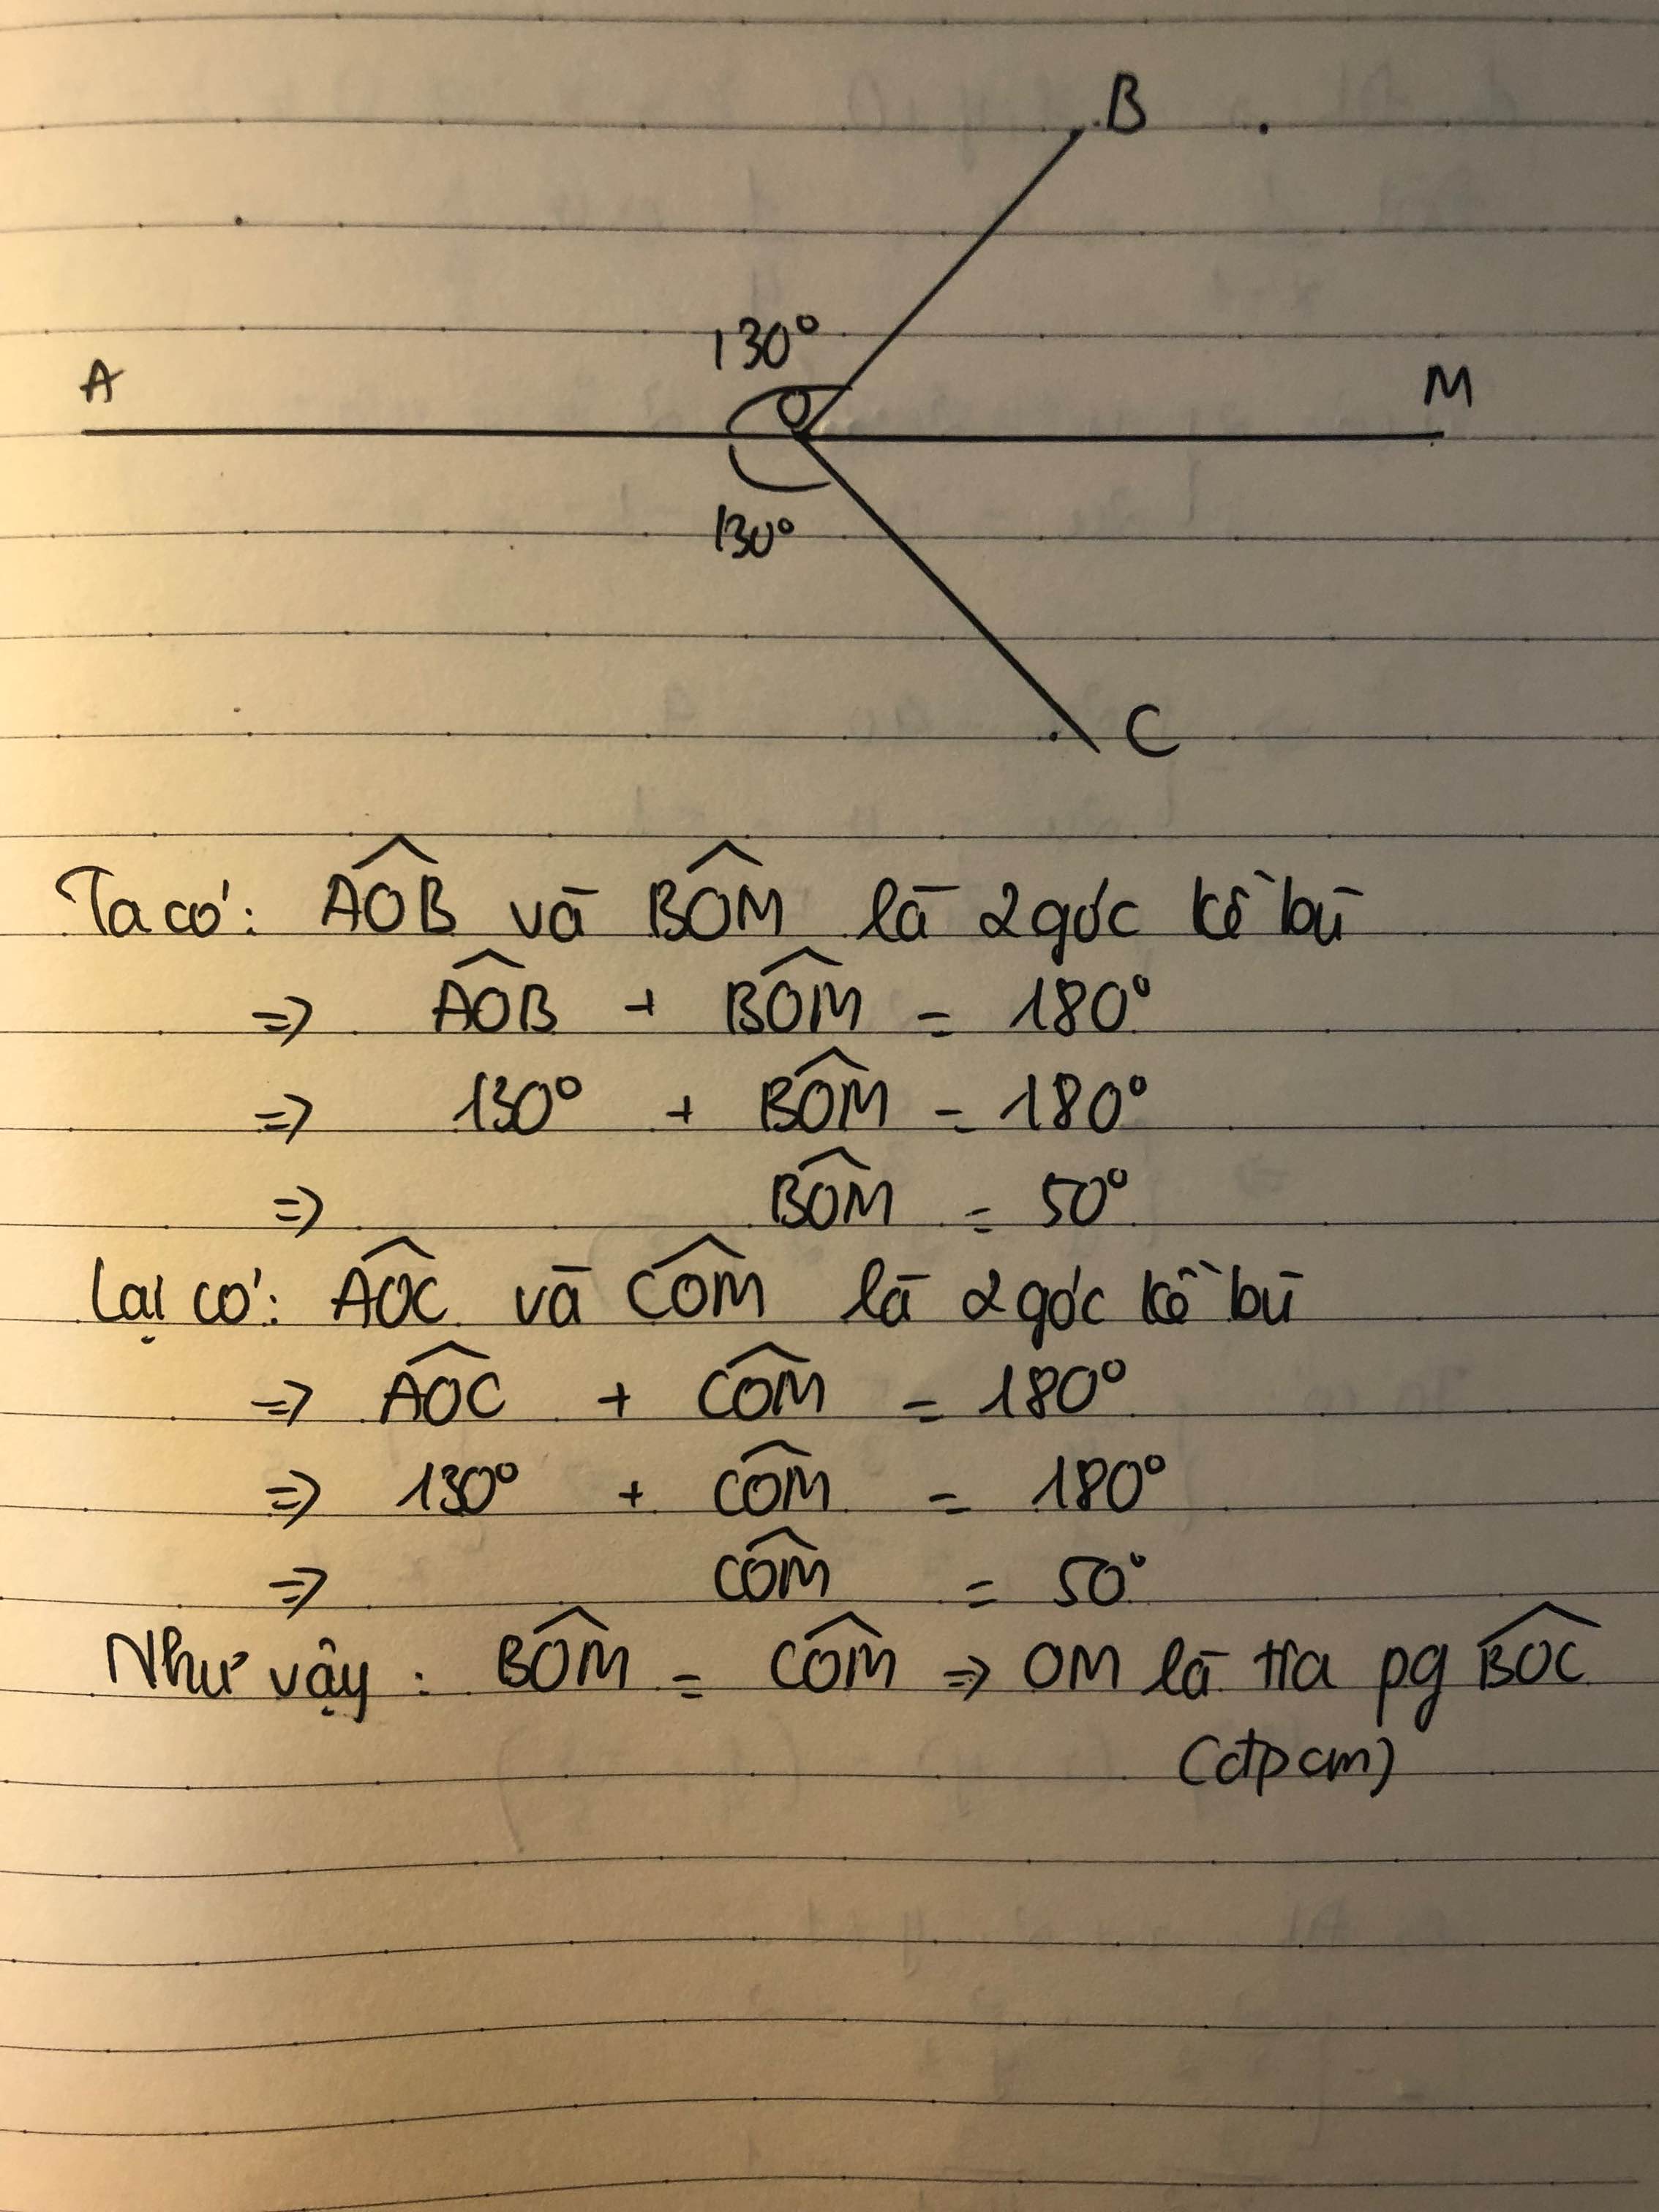 B
130°
A
O
M
130°
C
Ta có: AOB và BOM là 2 góc kề bù
=> AOB + BOM = 180°
=> 130° + BOM = 180°
=> BOM = 50°
Lại có: AOC và COM là 2 góc kề bù
=> AOC + COM = 180°
=> 130° + COM = 180°
=> COM = 50°
Như vậy: BOM = COM => OM là tia pg BOC
(đpcm)